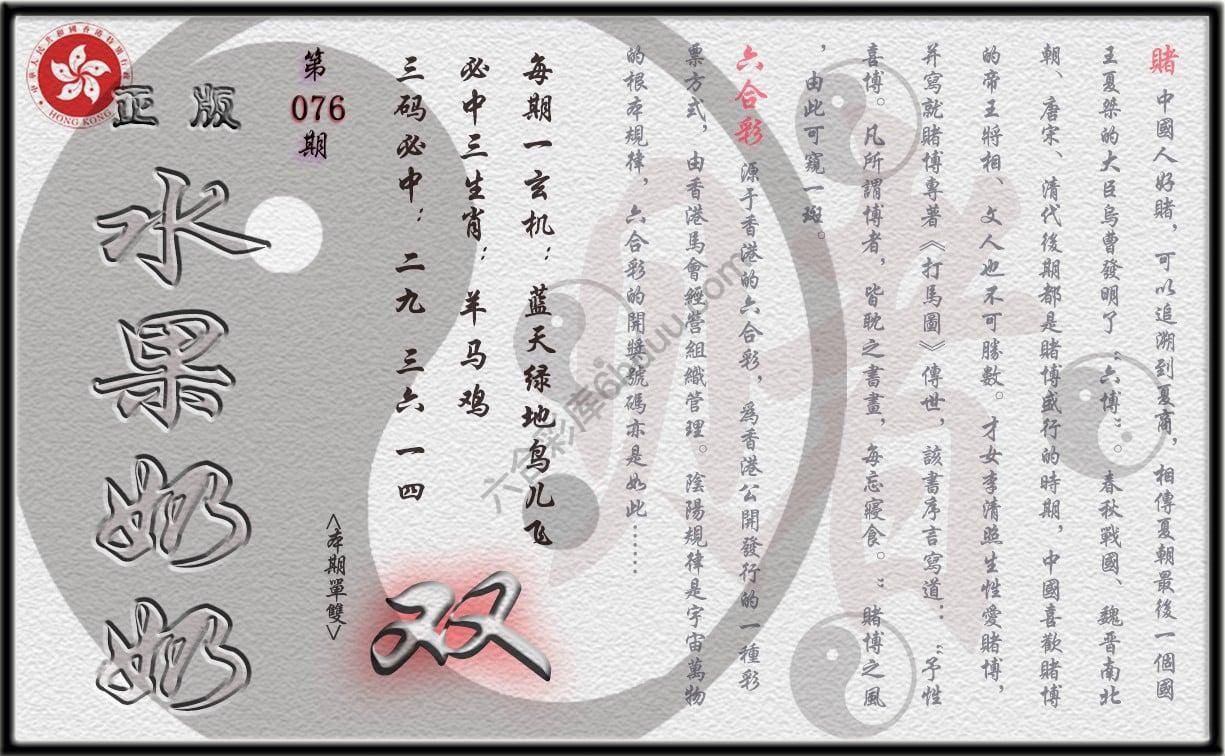 賭 中國人好賭，可以追溯到夏商，相傳夏朝最後一個國
王夏桀的大臣烏曹發明了“六博”。春秋戰國、魏晋南北
朝、唐宋、清代後期都是賭博盛行的時期，中國喜歡賭博
的帝王將相、文人也不可勝數。才女李清照生性愛賭博，
并寫就賭博專著《打馬圖》傳世，該書序言寫道：“予性
喜博。凡所謂博者，皆耽之書畫，每忘寢食。”賭博之風
，由此可窺一斑。
六合彩 源于香港的六合彩，爲香港公開發行的一種彩
票方式，由香港馬會經營組織管理。陰陽規律是宇宙萬物
的根本規律，六合彩的開獎號碼亦是如此……
每期一玄机：蓝天绿地鸟儿飞
必中三生肖：羊马鸡
三码必中：二九 三六 一四
<本期單雙>
双
第
076
期
正版
水果奶奶
HONG KONG
六合彩库6huuu.com